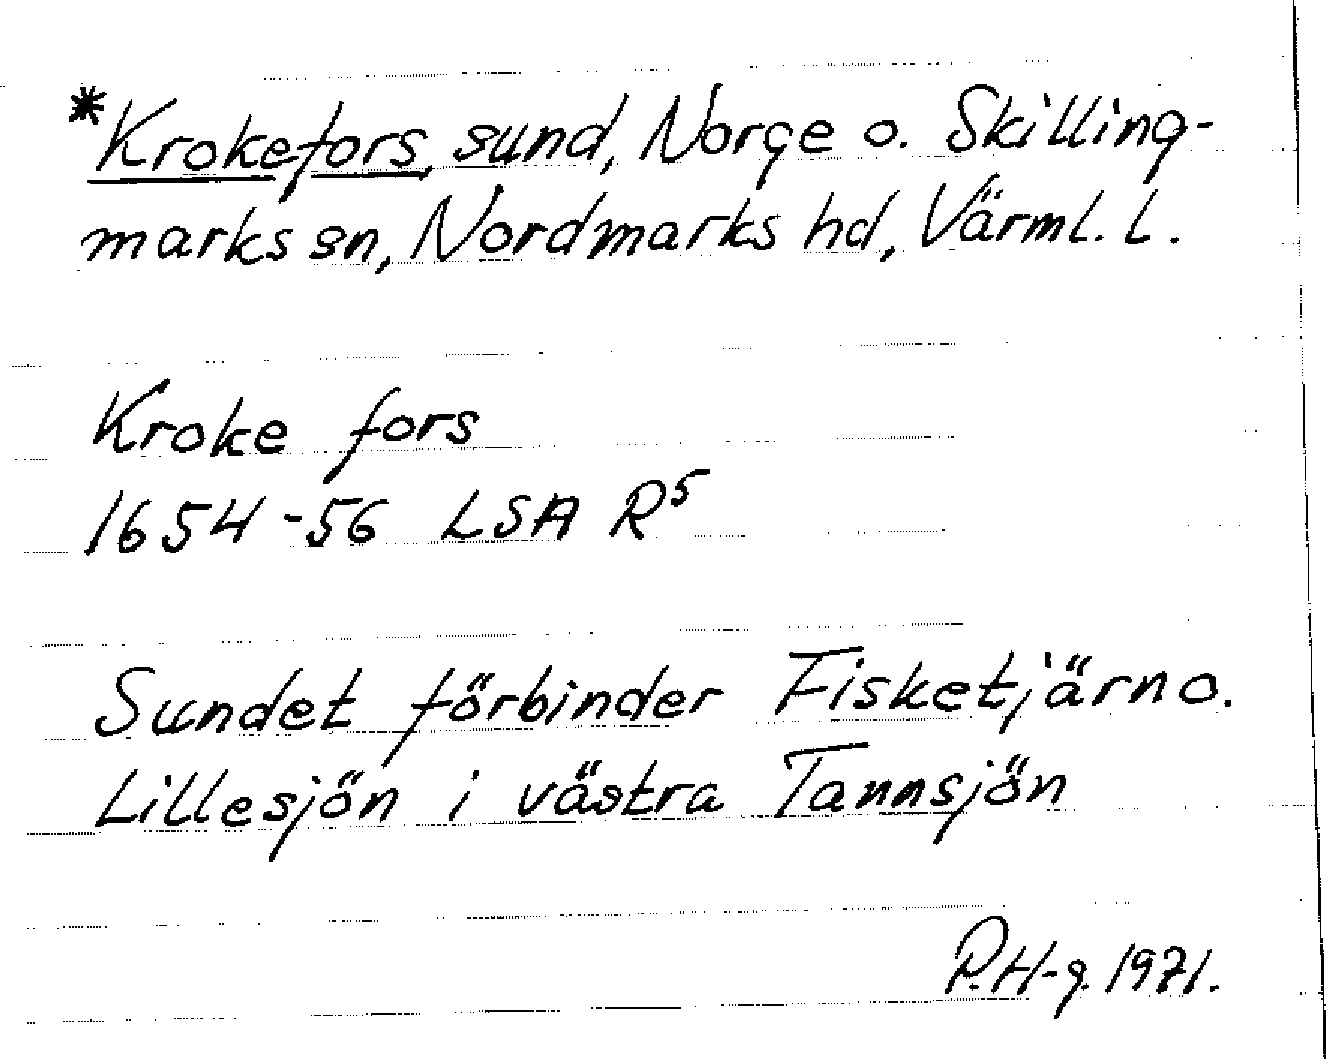 *Krokefors, sund, Norge o. Skilling-
marks sn, Nordmarks hd, Värml. l.
Kroke fors
1654-56 LSA R⁵
Sundet förbinder Fisketjärn o.
Lillesjön i västra Tannsjön
P.H-g. 1971.